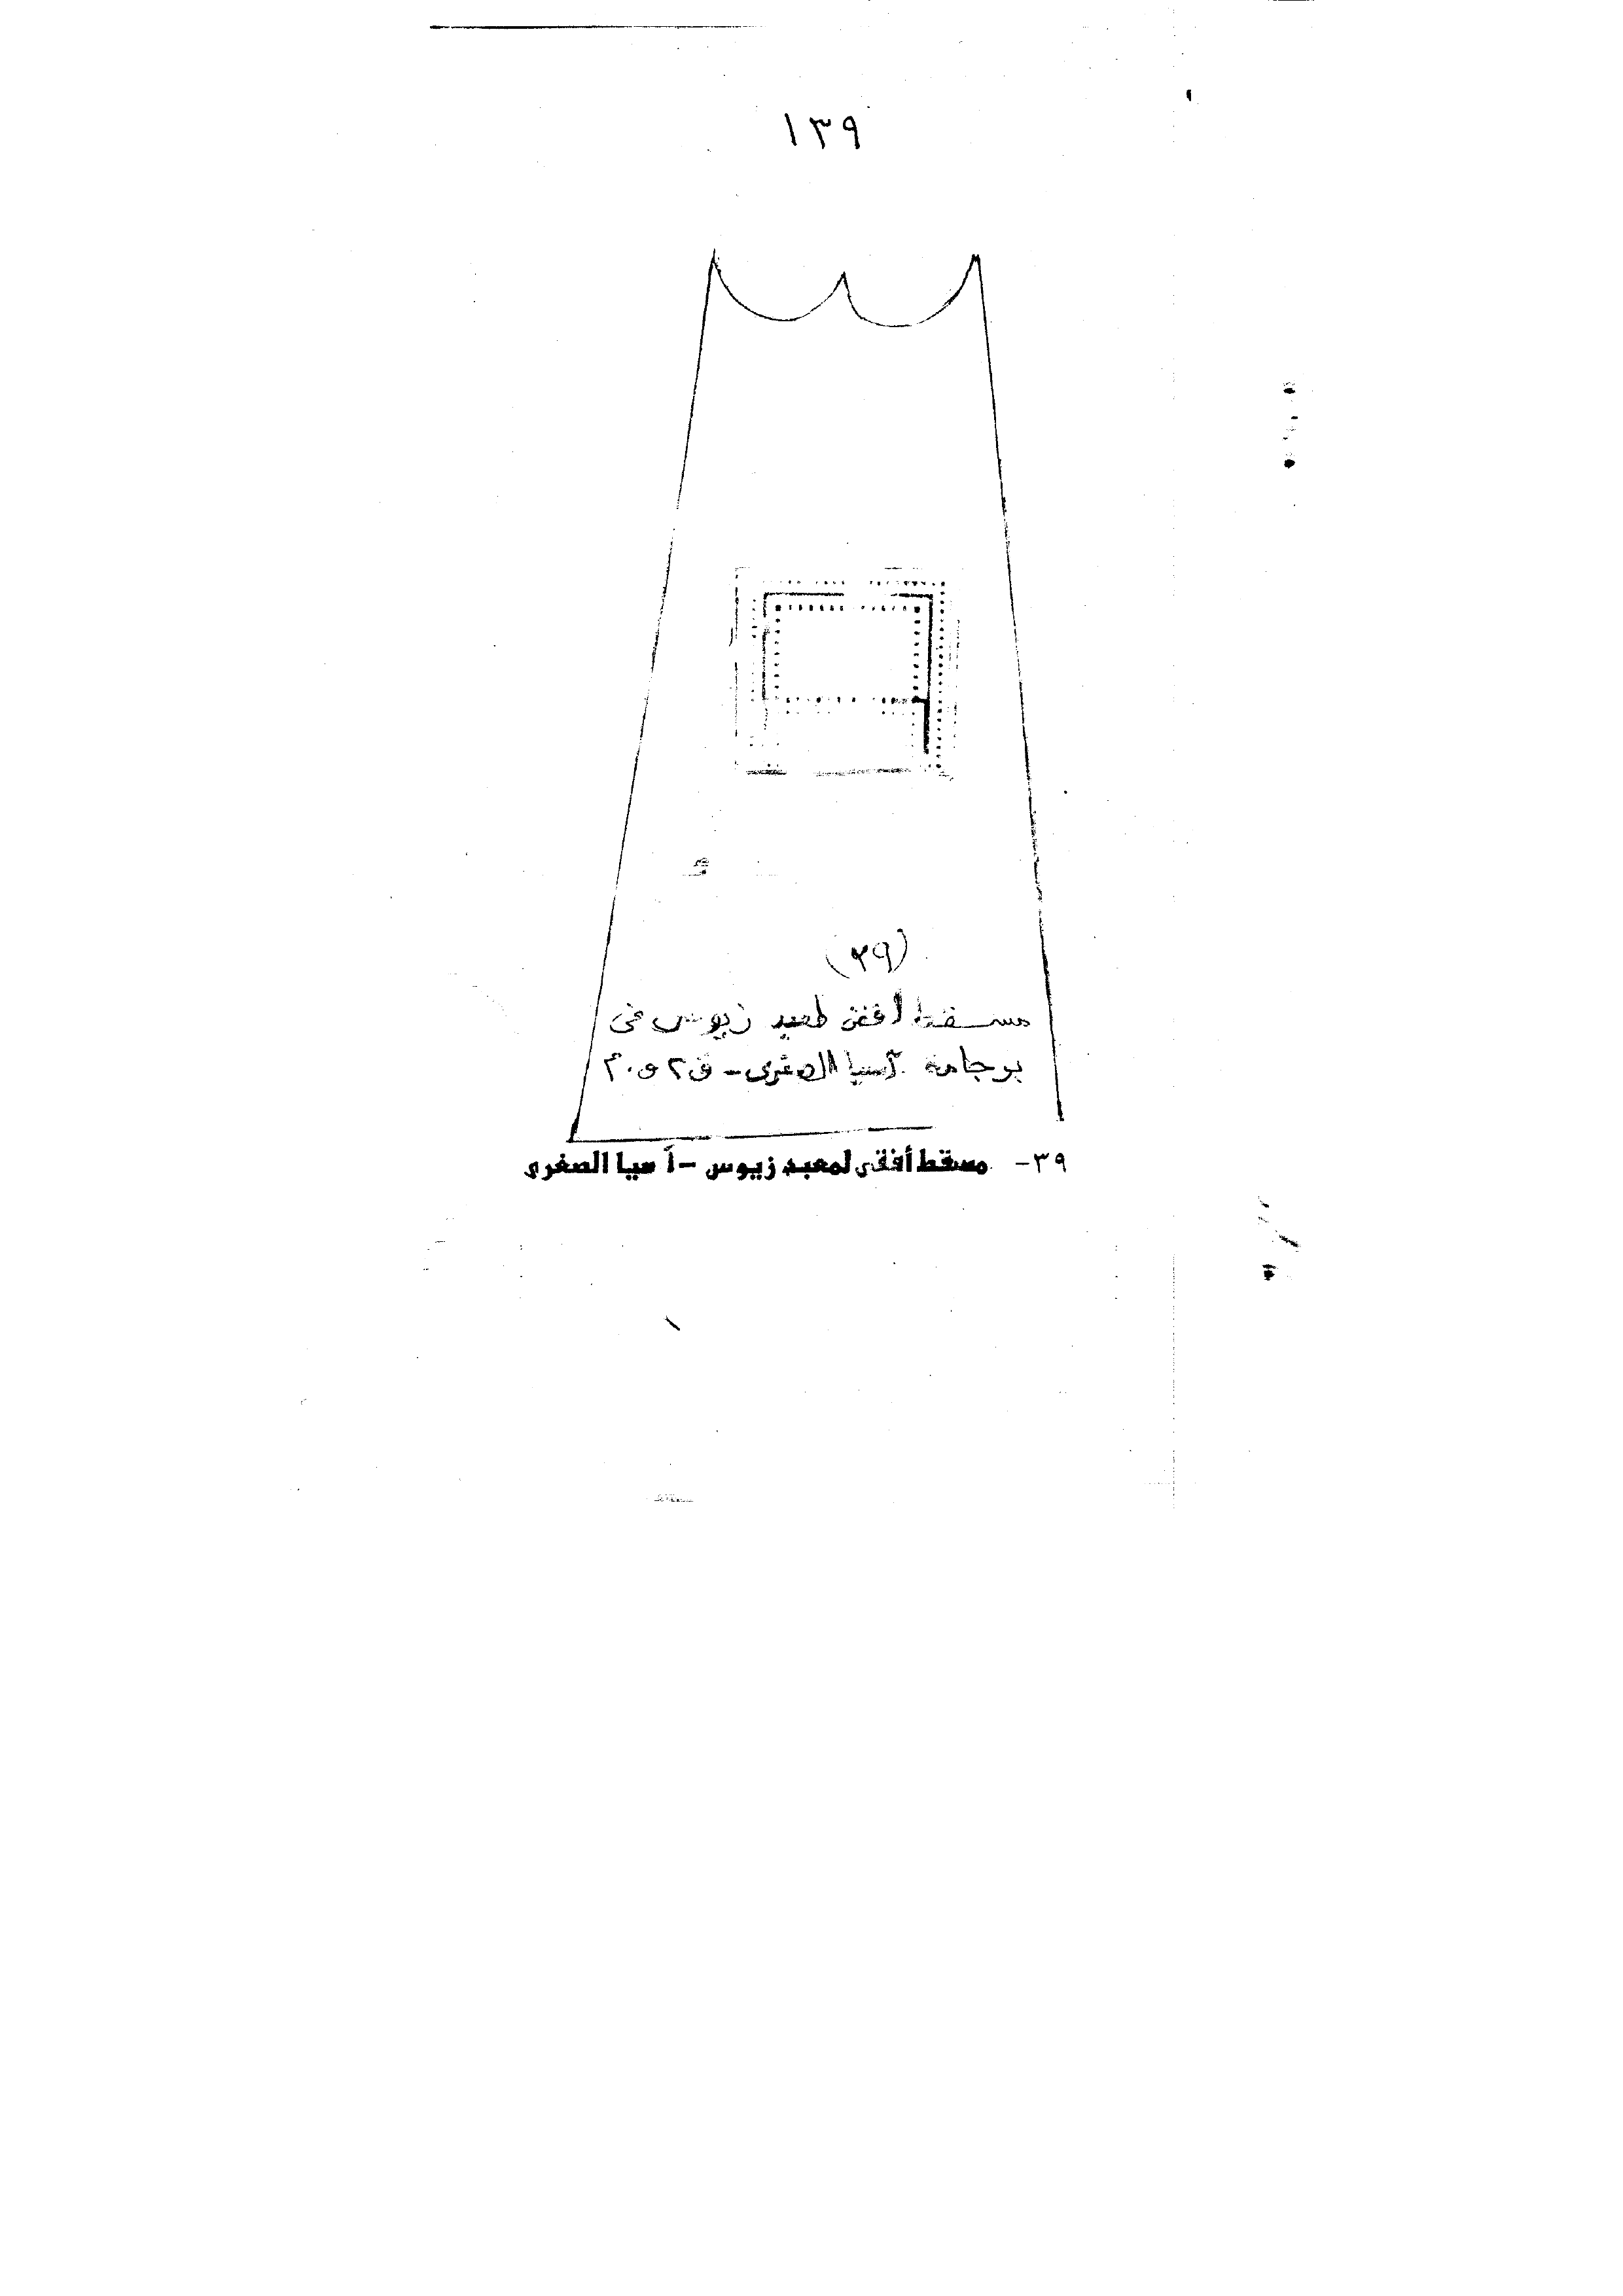 ١٣٩
(٣٩)
مسقط أفقى لمعبد زيوس فى
برجامة آسيا الصغرى - ق ٢ ق.م
٣٩- مسقط أفقى لمعبد زيوس - آسيا الصغرى